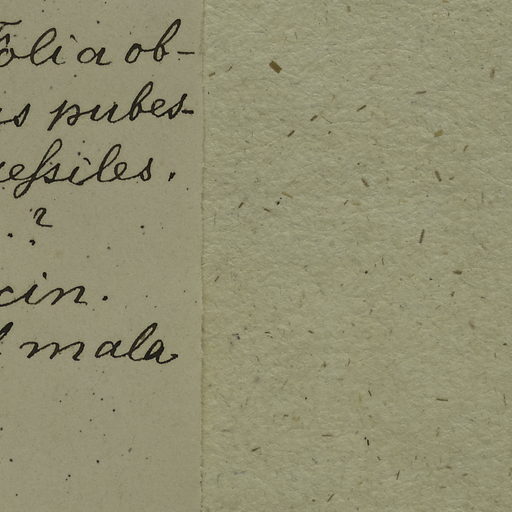 Folia ob-
s pubes-
essiles.
. ?
cin.
mala